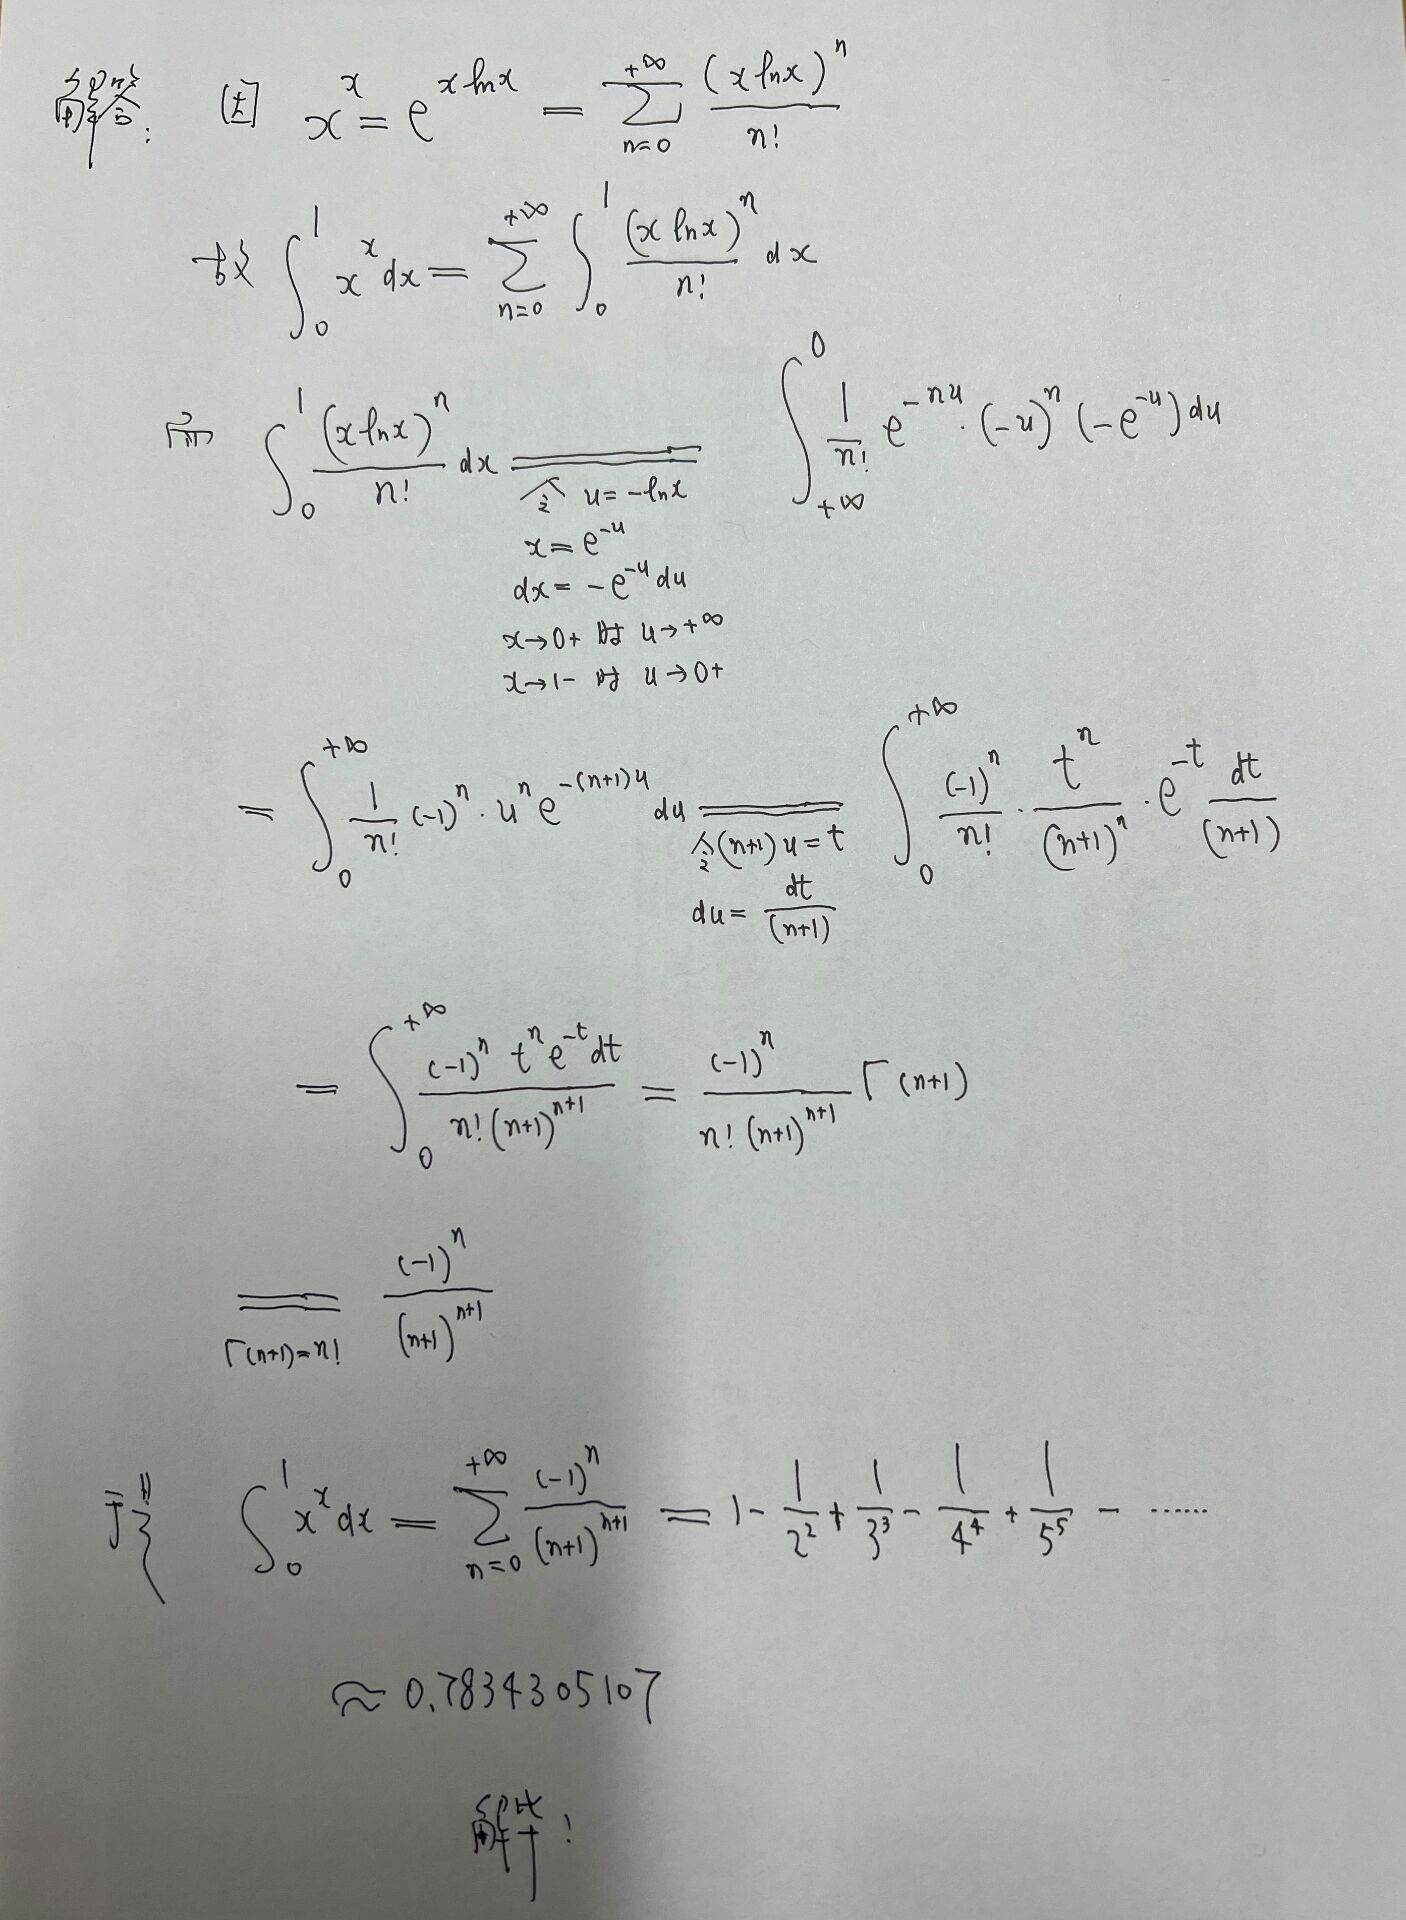 解答: 因 x^x = e^{x ln x} = \sum_{n=0}^{+∞} \frac{(x ln x)^n}{n!}
故 \int_0^1 x^x dx = \sum_{n=0}^{+∞} \int_0^1 \frac{(x ln x)^n}{n!} dx
而 \int_0^1 \frac{(x ln x)^n}{n!} dx ═══ \int_{+∞}^0 \frac{1}{n!} e^{-nu} · (-u)^n (-e^{-u}) du
令 u = -ln x
x = e^{-u}
dx = -e^{-u} du
x → 0+ 时 u → +∞
x → 1- 时 u → 0+
= \int_0^{+∞} \frac{1}{n!} (-1)^n · u^n e^{-(n+1)u} du ═══ \int_0^{+∞} \frac{(-1)^n}{n!} · \frac{t^n}{(n+1)^n} · e^{-t} \frac{dt}{(n+1)}
令 (n+1)u = t
du = \frac{dt}{(n+1)}
= \int_0^{+∞} \frac{(-1)^n t^n e^{-t} dt}{n! (n+1)^{n+1}} = \frac{(-1)^n}{n! (n+1)^{n+1}} Γ(n+1)
═══ \frac{(-1)^n}{(n+1)^{n+1}}
Γ(n+1) = n!
\int_0^1 x^x dx = \sum_{n=0}^{+∞} \frac{(-1)^n}{(n+1)^{n+1}} = 1 - \frac{1}{2^2} + \frac{1}{3^3} - \frac{1}{4^4} + \frac{1}{5^5} - ······
≈ 0.7834305107
解毕!